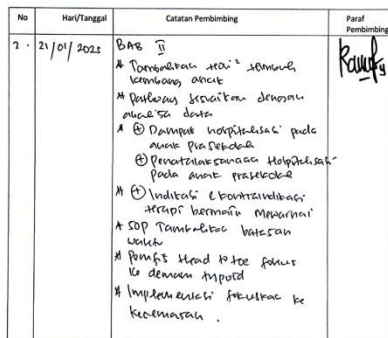 No
Hari/Tanggal
Catatan Pembimbing
Paraf
Pembimbing
2. 21/01/2025
BAB II
* Tambahkan teori² tumbuh
kembang anak
* pathway sesuaikan dengan
analisa data
* ⊕ Dampak hospitalisasi pada
anak Prasekolah
⊕ penatalaksanaan Hospitalisasi
pada anak prasekolah
* ⊕ Indikasi & kontraindikasi
terapi bermain mewarnai
* SOP Tambahkan batasan
waktu
* Pemfis Head to toe fokus
ke demam typoid
* Implementasi fokuskan ke
kecemasan.